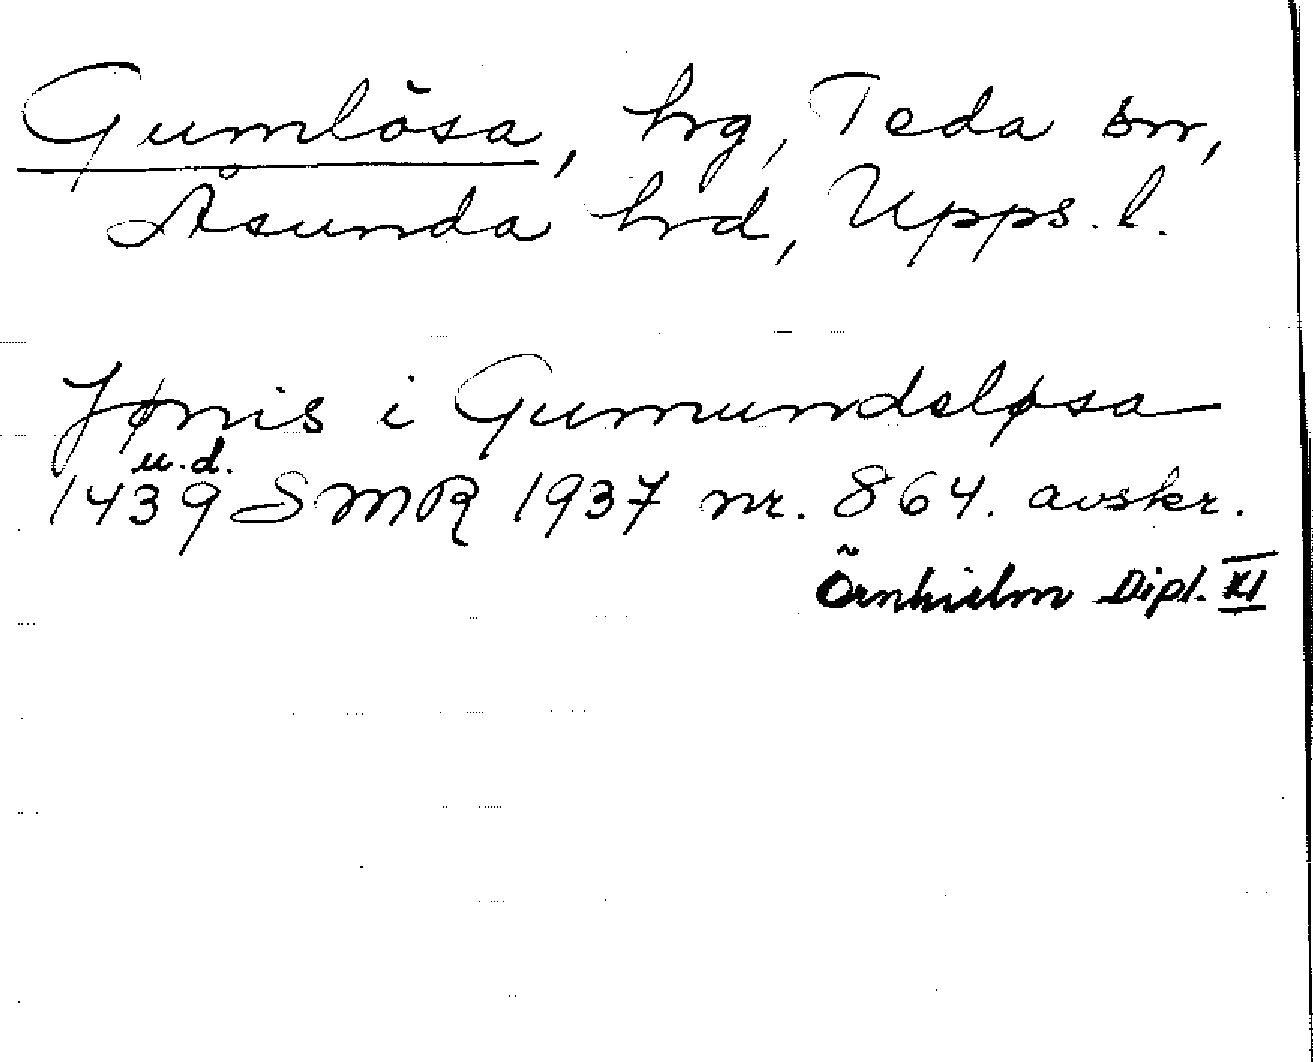 Gumlösa, hrg, Teda sn,
Åsunda hrd, Upps. l.
Jønis i Gumundeløsa
u.d.
1439 SMR 1937 nr. 864. avskr.
Örnhielm Dipl. XI